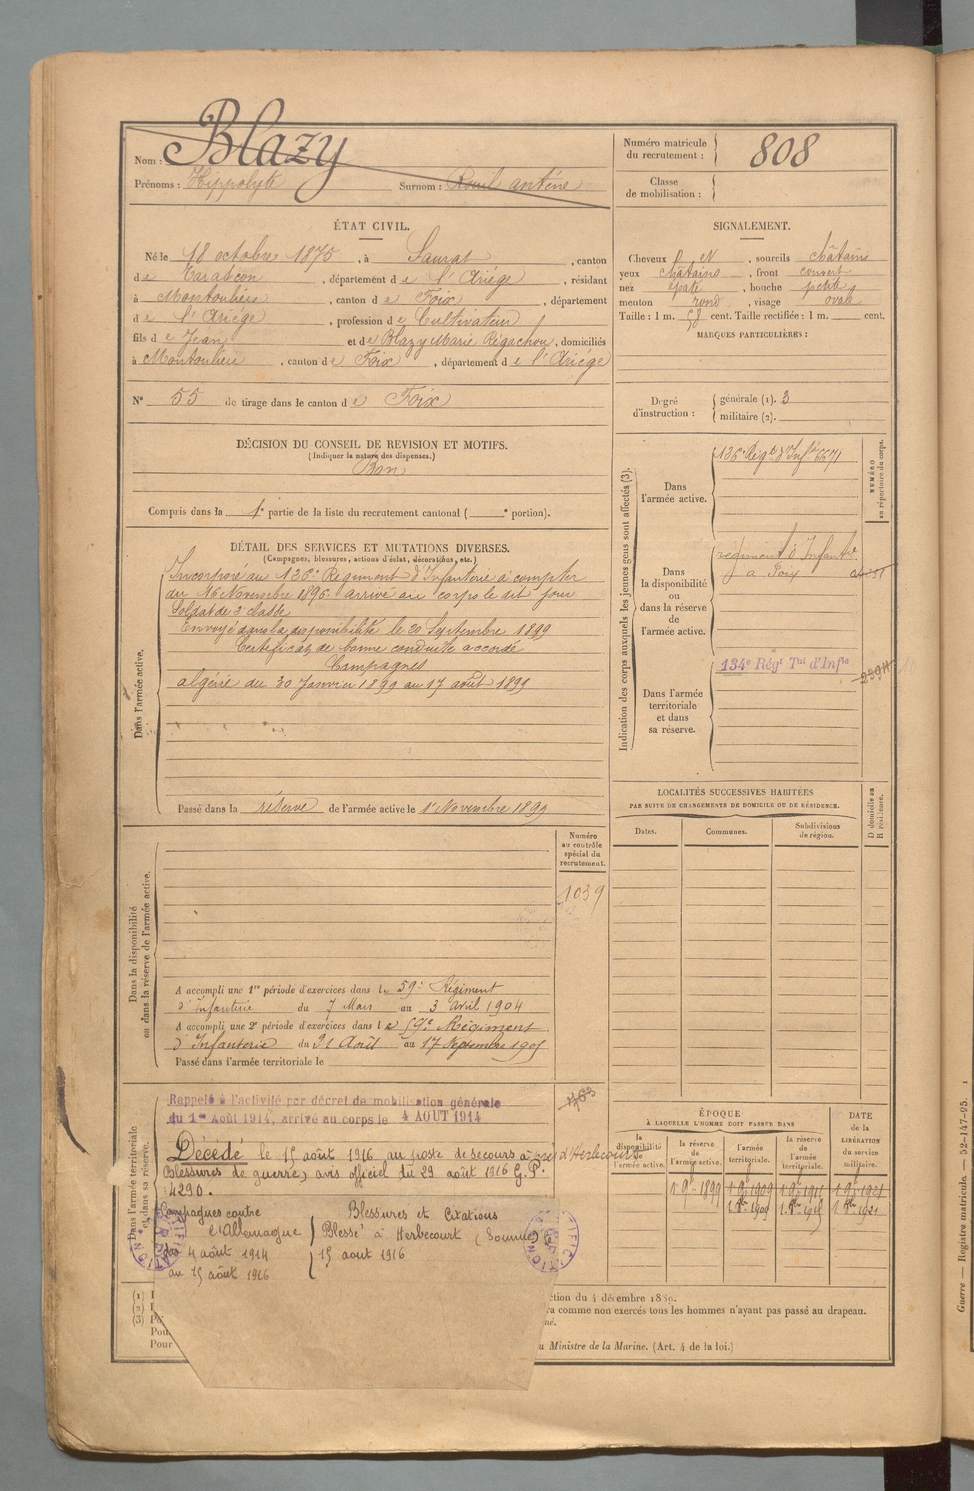 Nom : Blazy
Prénoms : Hippolyte Surnom :
Numéro matricule du recrutement : 808
Classe de mobilisation :
ÉTAT CIVIL.
Né le 18 octobre 1875, à Saurat, canton
de Tarascon, département de l'Ariège, résidant
à Montoulieu, canton de Foix, département
de l'Ariège, profession de Cultivateur
fils de Jean et de Blazy Marie, domiciliés
à Montoulieu, canton de Foix, département de l'Ariège
N° 55 de tirage dans le canton de Foix
SIGNALEMENT.
Cheveux, sourcils châtains
yeux châtains, front couvert
nez épaté, bouche petite
menton rond, visage ovale
Taille : 1 m. 58 cent. Taille rectifiée : 1 m. cent.
MARQUES PARTICULIÈRES :
Degré d'instruction : générale (1). 3
militaire (2).
DÉCISION DU CONSEIL DE REVISION ET MOTIFS.
(Indiquer la nature des dispenses.)
Bon
Compris dans la 1e partie de la liste du recrutement cantonal ( e portion).
DÉTAIL DES SERVICES ET MUTATIONS DIVERSES.
(Campagnes, blessures, actions d'éclat, décorations, etc.)
Dans l'armée active.
Incorporé au 136e Régiment d'Infanterie à compter
du 16 Novembre 1896. arrivé au corps le dit jour
Soldat de 2e classe
Envoyé dans la disponibilité le 20 Septembre 1899
Certificat de bonne conduite accordé
Campagnes
algérie du 30 Janvier 1899 au 17 août 1899
Passé dans la réserve de l'armée active le 1 Novembre 1899
Indication des corps auxquels les jeunes gens sont affectés (3).
NUMÉRO au répertoire du corps.
Dans l'armée active.
136e Régt d'Infie 6671
Dans la disponibilité ou dans la réserve de l'armée active.
régiment d'Infantie
à Foix
Dans l'armée territoriale et dans sa réserve.
134e Régt Tal d'Infie
LOCALITÉS SUCCESSIVES HABITÉES
PAR SUITE DE CHANGEMENTS DE DOMICILE OU DE RÉSIDENCE.
Dates. Communes. Subdivisions de région.
D domicile ou R résidence.
Numéro au contrôle spécial du recrutement.
1039
Dans la disponibilité ou dans la réserve de l'armée active.
A accompli une 1re période d'exercices dans le 59e Régiment
d'Infanterie du 7 Mars au 3 Avril 1904
A accompli une 2e période d'exercices dans le 59e Régiment
d'Infanterie du 21 Août au 17 Septembre 1905
Passé dans l'armée territoriale le
Dans l'armée territoriale et dans sa réserve.
Rappelé à l'activité par décret de mobilisation générale
du 1er Août 1914, arrivé au corps le 4 AOUT 1914
Décédé le 15 août 1916 au poste de secours à près d'Herbecourt
Blessures de guerre, avis officiel du 29 août 1916 G.P.
4290.
Campagnes contre
l'Allemagne
du 4 août 1914
au 15 août 1916
Blessures et Citations
Blessé à Herbecourt (Somme) le
15 aout 1916
ÉPOQUE
À LAQUELLE L'HOMME DOIT PASSER DANS
la disponibilité de l'armée active. la réserve de l'armée active. l'armée territoriale. la réserve de l'armée territoriale.
DATE de la LIBÉRATION du service militaire.
(1) I
(2) I
(3)
Pou
Pour
ction du 4 décembre 1889.
ra comme non exercés tous les hommes n'ayant pas passé au drapeau.
né.
u Ministre de la Marine. (Art. 4 de la loi.)
Guerre — Registre matricule. — 52-147-95.